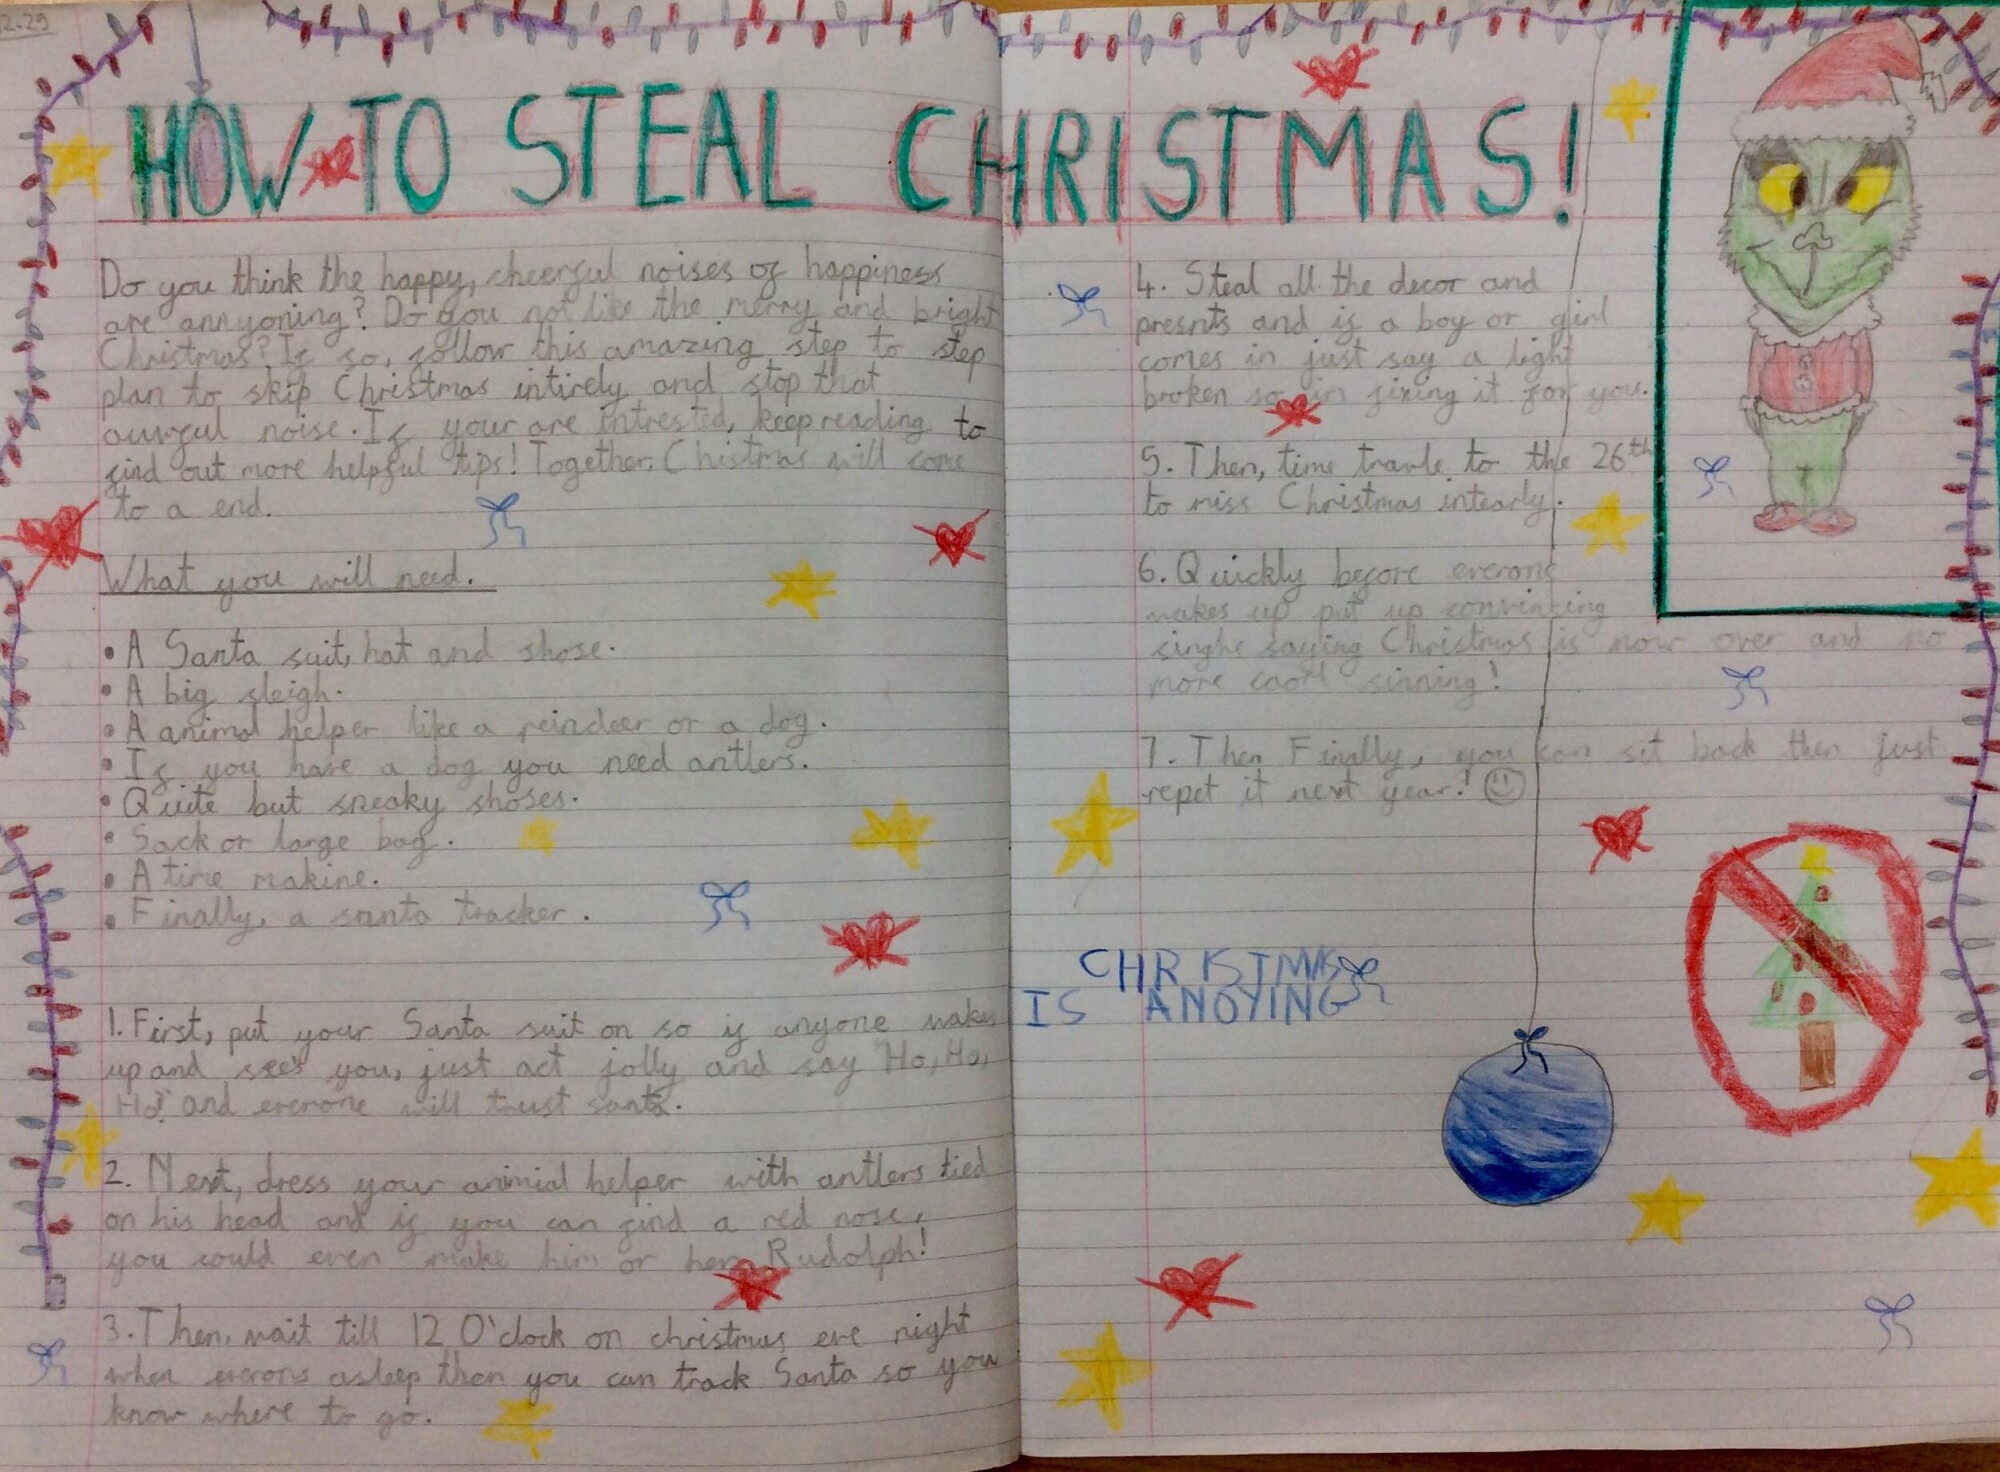 12.23
HOW TO STEAL CHRISTMAS!
Do you think the happy, cheerful noises of happiness
are annyoning? Do you not like the merry and bright
Christmas? If so, follow this amazing step to step
plan to skip Christmas intirely and stop that
awwful noise. If your are intrested, keep reading to
find out more helpful tips! Together, Christmas will come
to a end.
What you will need.
• A Santa suit, hat and shose.
• A big sleigh.
• A animal helper like a reindeer or a dog.
• If you have a dog you need antlers.
• Quite but sneaky shoses.
• Sack or large bag.
• A time makine.
• Finally, a santa tracker.
1. First, put your Santa suit on so if anyone wakes
up and sees you, just act jolly and say "Ho, Ho,
Ho!" and everone will trust santa.
2. Next, dress your animial helper with antlers tied
on his head and if you can find a red nose,
you could even make him or her Rudolph!
3. Then, wait till 12 O'clock on christmas eve night
when everons asleep then you can track Santa so you
know where to go.
4. Steal all the decor and
presnts and if a boy or girl
comes in just say a light
broken so im fixing it for you.
5. Then, time travle to the 26th
to miss Christmas intearly.
6. Quickly before everone
wakes up put up convincing
singhs saying Christmas is now over and no
more caorl sinning!
7. Then Finally, you can sit back then just
repet it next year! 
CHRISTMAS
IS ANOYING